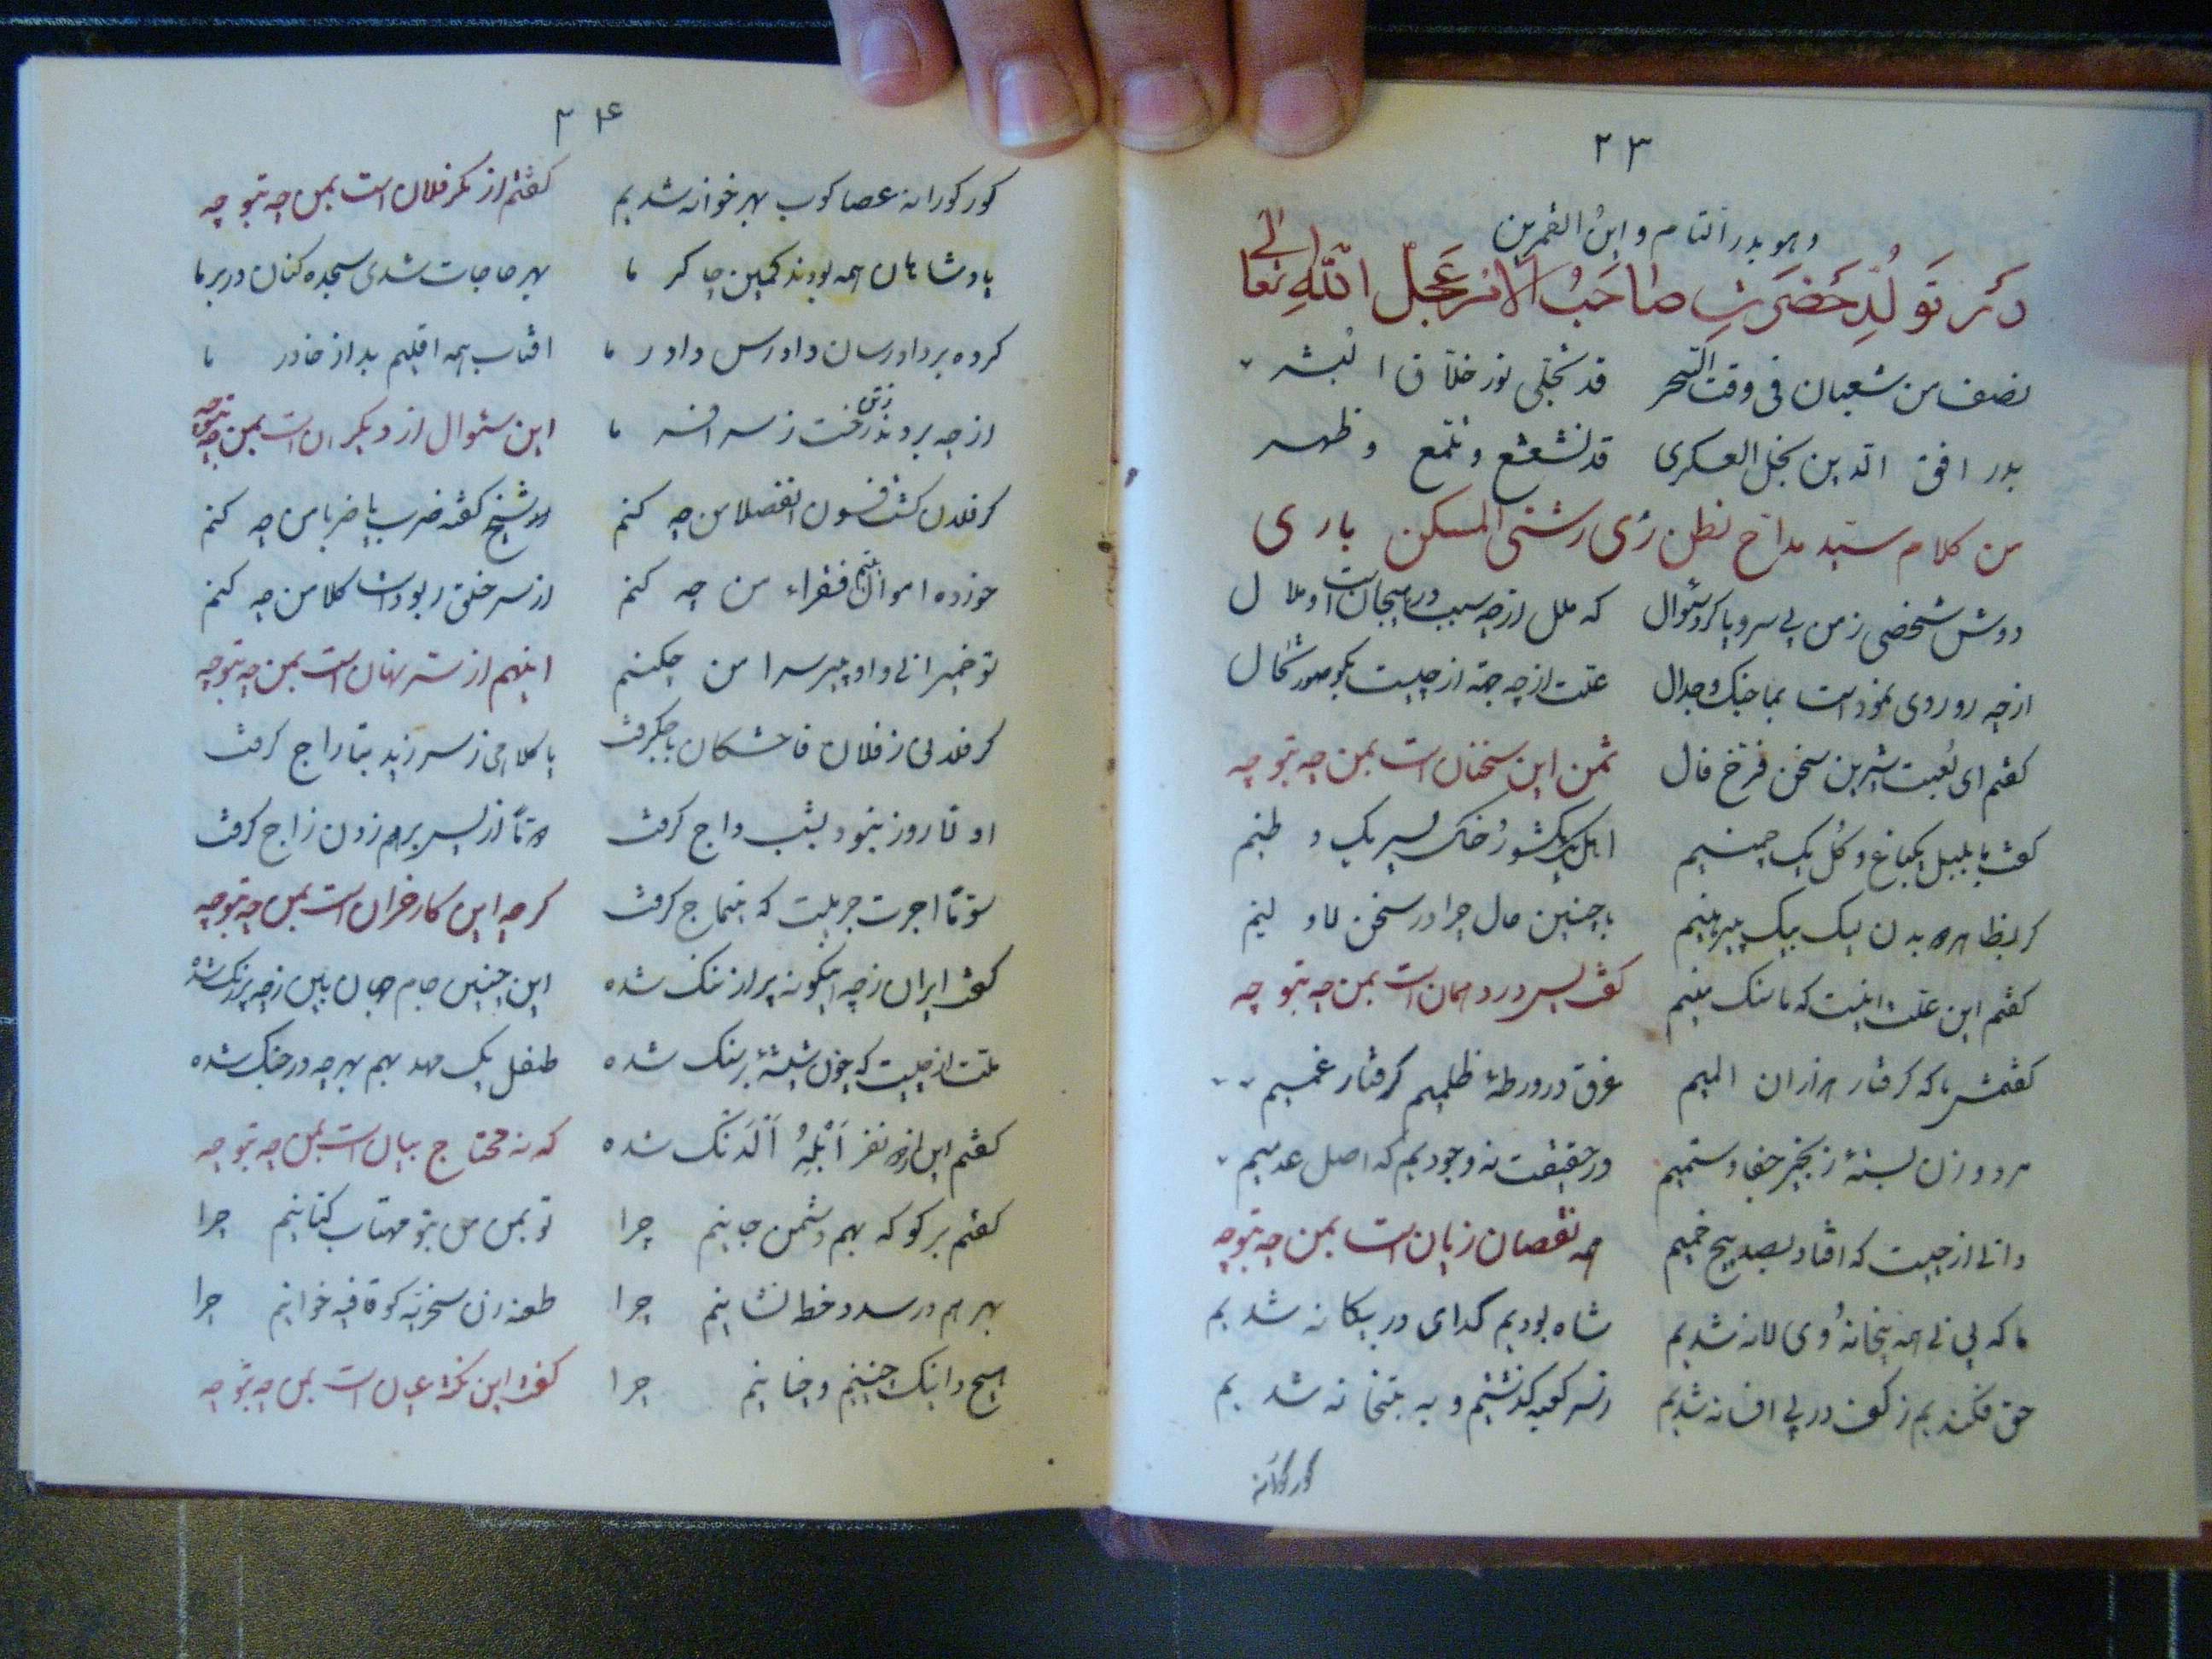 ۲۳
وهو بدر التام و ابن القمرین
در تولد حضرت صاحب الامر عجل الله تعالی
نصف من شعبان فی وقت السحر قد تجلی نور خلاق البشر
بدر افق الدین نجل العسکری قد تشعشع و تلمع و ظهر
من کلام سید مداح رشتی المسکن
دوش شخصی ز من بی سر و پا کرد سئوال که ملل از چه سبب در هیجانست و ملال
از چه رو روی نمود است بما جنک و جدال علت از چه جهة از چیست بکو صورت حال
کفتم ای لعبت شیرین سخن فرخ فال ثمن این سخنان است بمن چه بتو چه
کفت ما بلبل یکباغ و کل یک چمنیم اهل یک کشور و خاک پسر یک وطنیم
کر بظاهر دو بدن لیک بیک پیرهنیم با چنین حال چرا در سخن لا و لنیم
کفتم این علت اینست که ما سنک منیم کفت پس درد همان است بمن چه بتو چه
کفتمش ما که کرفتار هزاران المیم غرق در ورطهٔ ظلمیم کرفتار غمیم
مرد و زن بستهٔ زنجیر جفا و ستمیم در حقیقت نه وجودیم که اصل عدمیم
دانی از چیست که افتاد بصد پیچ خمیم همه نقصان زیان است بمن چه بتو چه
ما که بی نی همه بیخانه و بی لانه شدیم شاه بودیم کدای در بیکانه شدیم
حق فکندیم ز کف در پی افسانه شدیم از سر کعبه کذشتیم و به بتخانه شدیم
کورکورانه
۲۴
کورکورانه عصا کوب بهر خوانه شدیم کفتم از مکر فلان است بمن چه بتو چه
پادشاهان همه بودند کمین چاکر ما بهر حاجات شدی سجده کنان در بر ما
کرده بر داورسان دادرس داور ما افتاب همه اقلیم بد از خاور ما
از چه بردند زتن رخت ز سر افسر ما این سئوال از دیکران است بمن چه بتو چه
کر فلان کشت فسون الفضلا من چه کنم ور شیخ کفته ضرب یا ضربا من چه کنم
خورده اموال یتیم فقراء من چه کنم از سر خلق ربود است کلا من چه کنم
تو خمیرانی و او پیر سرا من چکنم اینهم از ستر نهان است بمن چه بتو چه
کر فلانی ز فلان فاحشکان باج کرفت یا کلاهی ز سر زید بتاراج کرفت
او تا روز ننمود بشب واج کرفت
کرچه این کار خران است بمن چه بتو چه
کفت ایران ز چه اینکونه پر از ننک شده این چنین جام جهان بین ز چه پر زنک شد
علت از چیست که چون شیشهٔ بر سنک شده طفل یک مهد بهم بهر چه در جنک شده
کفتم این از دو نفر ابله الدنک شده که نه محتاج بیان است بمن چه بتو چه
کفتم بر کو که بهم دشمن جانیم چرا تو بمن من بتو مهتاب کتانیم چرا
بهر هم در صدد خط نشانیم چرا طعنه زن سخریه کو قافیه خوانیم چرا
هیچ دانیک چنینیم و چنانیم چرا کفت این نکته عیان است بمن چه بتو چه